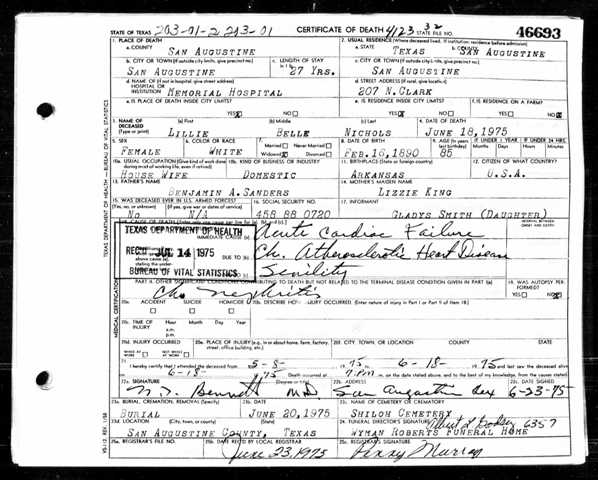 STATE OF TEXAS 203-01-2 203-01 CERTIFICATE OF DEATH 4123 32 STATE FILE NO. 46693
1. PLACE OF DEATH 2. USUAL RESIDENCE (Where deceased lived. If institution: residence before admission)
a. COUNTY SAN AUGUSTINE a. STATE TEXAS b. COUNTY SAN AUGUSTINE
b. CITY OR TOWN (If outside city limits, give precinct no.) c. LENGTH OF STAY c. CITY OR TOWN (If outside city limits, give precinct no.)
SAN AUGUSTINE 27 YRS. SAN AUGUSTINE
d. NAME OF (If not in hospital, give street address) HOSPITAL OR INSTITUTION d. STREET ADDRESS (If rural, give location)
MEMORIAL HOSPITAL 207 N.CLARK
e. IS PLACE OF DEATH INSIDE CITY LIMITS? e. IS RESIDENCE INSIDE CITY LIMITS? f. IS RESIDENCE ON A FARM?
YES X NO YES X NO YES NO X
3. NAME OF DECEASED (Type or print) (a) First (b) Middle (c) Last 4. DATE OF DEATH
LILLIE BELLE NICHOLS JUNE 18,1975
5. SEX 6. COLOR OR RACE 7. Married Never Married 8. DATE OF BIRTH 9. AGE (In years last birthday) IF UNDER 1 YEAR IF UNDER 24 HRS.
FEMALE WHITE Widowed X Divorced FEB.16,1890 85 Months Days Hours Min.
10a. USUAL OCCUPATION (Give kind of work done during most of working life, even if retired) 10b. KIND OF BUSINESS OR INDUSTRY 11. BIRTHPLACE (State or foreign country) 12. CITIZEN OF WHAT COUNTRY?
HOUSE WIFE DOMESTIC ARKANSAS U.S.A.
13. FATHER'S NAME 14. MOTHER'S MAIDEN NAME
BENJAMIN A.SANDERS LIZZIE KING
15. WAS DECEASED EVER IN U.S. ARMED FORCES? 16. SOCIAL SECURITY NO. 17. INFORMANT
(Yes, no, or unknown) (If yes, give war or dates of service)
NO N/A 458 88 0720 GLADYS SMITH (DAUGHTER)
18. CAUSE OF DEATH INTERVAL BETWEEN ONSET AND DEATH
TEXAS DEPARTMENT OF HEALTH IMMEDIATE CAUSE (a) Acute Cardiac Failure
REC'D JUL 14 1975 DUE TO (b) Ch. Atherosclerotic Heart Disease
BUREAU OF VITAL STATISTICS Senility
PART II. OTHER SIGNIFICANT CONDITIONS CONTRIBUTING TO DEATH BUT NOT RELATED TO THE TERMINAL DISEASE CONDITION GIVEN IN PART I(a) 19. WAS AUTOPSY PERFORMED?
Ch. Nephritis YES NO X
20a. ACCIDENT SUICIDE HOMICIDE 20b. DESCRIBE HOW INJURY OCCURRED. (Enter nature of injury in Part I or Part II of item 18)
20c. TIME OF INJURY Hour Month Day Year
a.m.
p.m.
20d. INJURY OCCURRED 20e. PLACE OF INJURY (e.g., in or about home, farm, factory, street, office building, etc.) 20f. CITY, TOWN, OR LOCATION COUNTY STATE
WHILE AT WORK NOT WHILE AT WORK
21. I hereby certify that I attended the deceased from 5-8- 1975 to 6-18 1975 and last saw the deceased alive
6-18- 1975 Death occurred at 7 P.M. m, on the date stated above, and to the best of my knowledge, from the causes stated.
22a. SIGNATURE (Degree or title) 22b. ADDRESS 22c. DATE SIGNED
Bennett MD San Augustine Tex 6-23-75
23a. BURIAL, CREMATION, REMOVAL (Specify) 23b. DATE 23c. NAME OF CEMETERY OR CREMATORY
BURIAL JUNE 20,1975 SHILOH CEMETERY
23d. LOCATION (City, town, or county) (State) 24. FUNERAL DIRECTOR'S SIGNATURE 6357
SAN AUGUSTINE COUNTY, TEXAS WYMAN ROBERTS FUNERAL HOME
25a. REGISTRAR'S FILE NO. 25b. DATE REC'D BY LOCAL REGISTRAR 25c. REGISTRAR'S SIGNATURE
June 23, 1975 Murray
TEXAS DEPARTMENT OF HEALTH — BUREAU OF VITAL STATISTICS
MEDICAL CERTIFICATION
VS-112 REV. 1/58